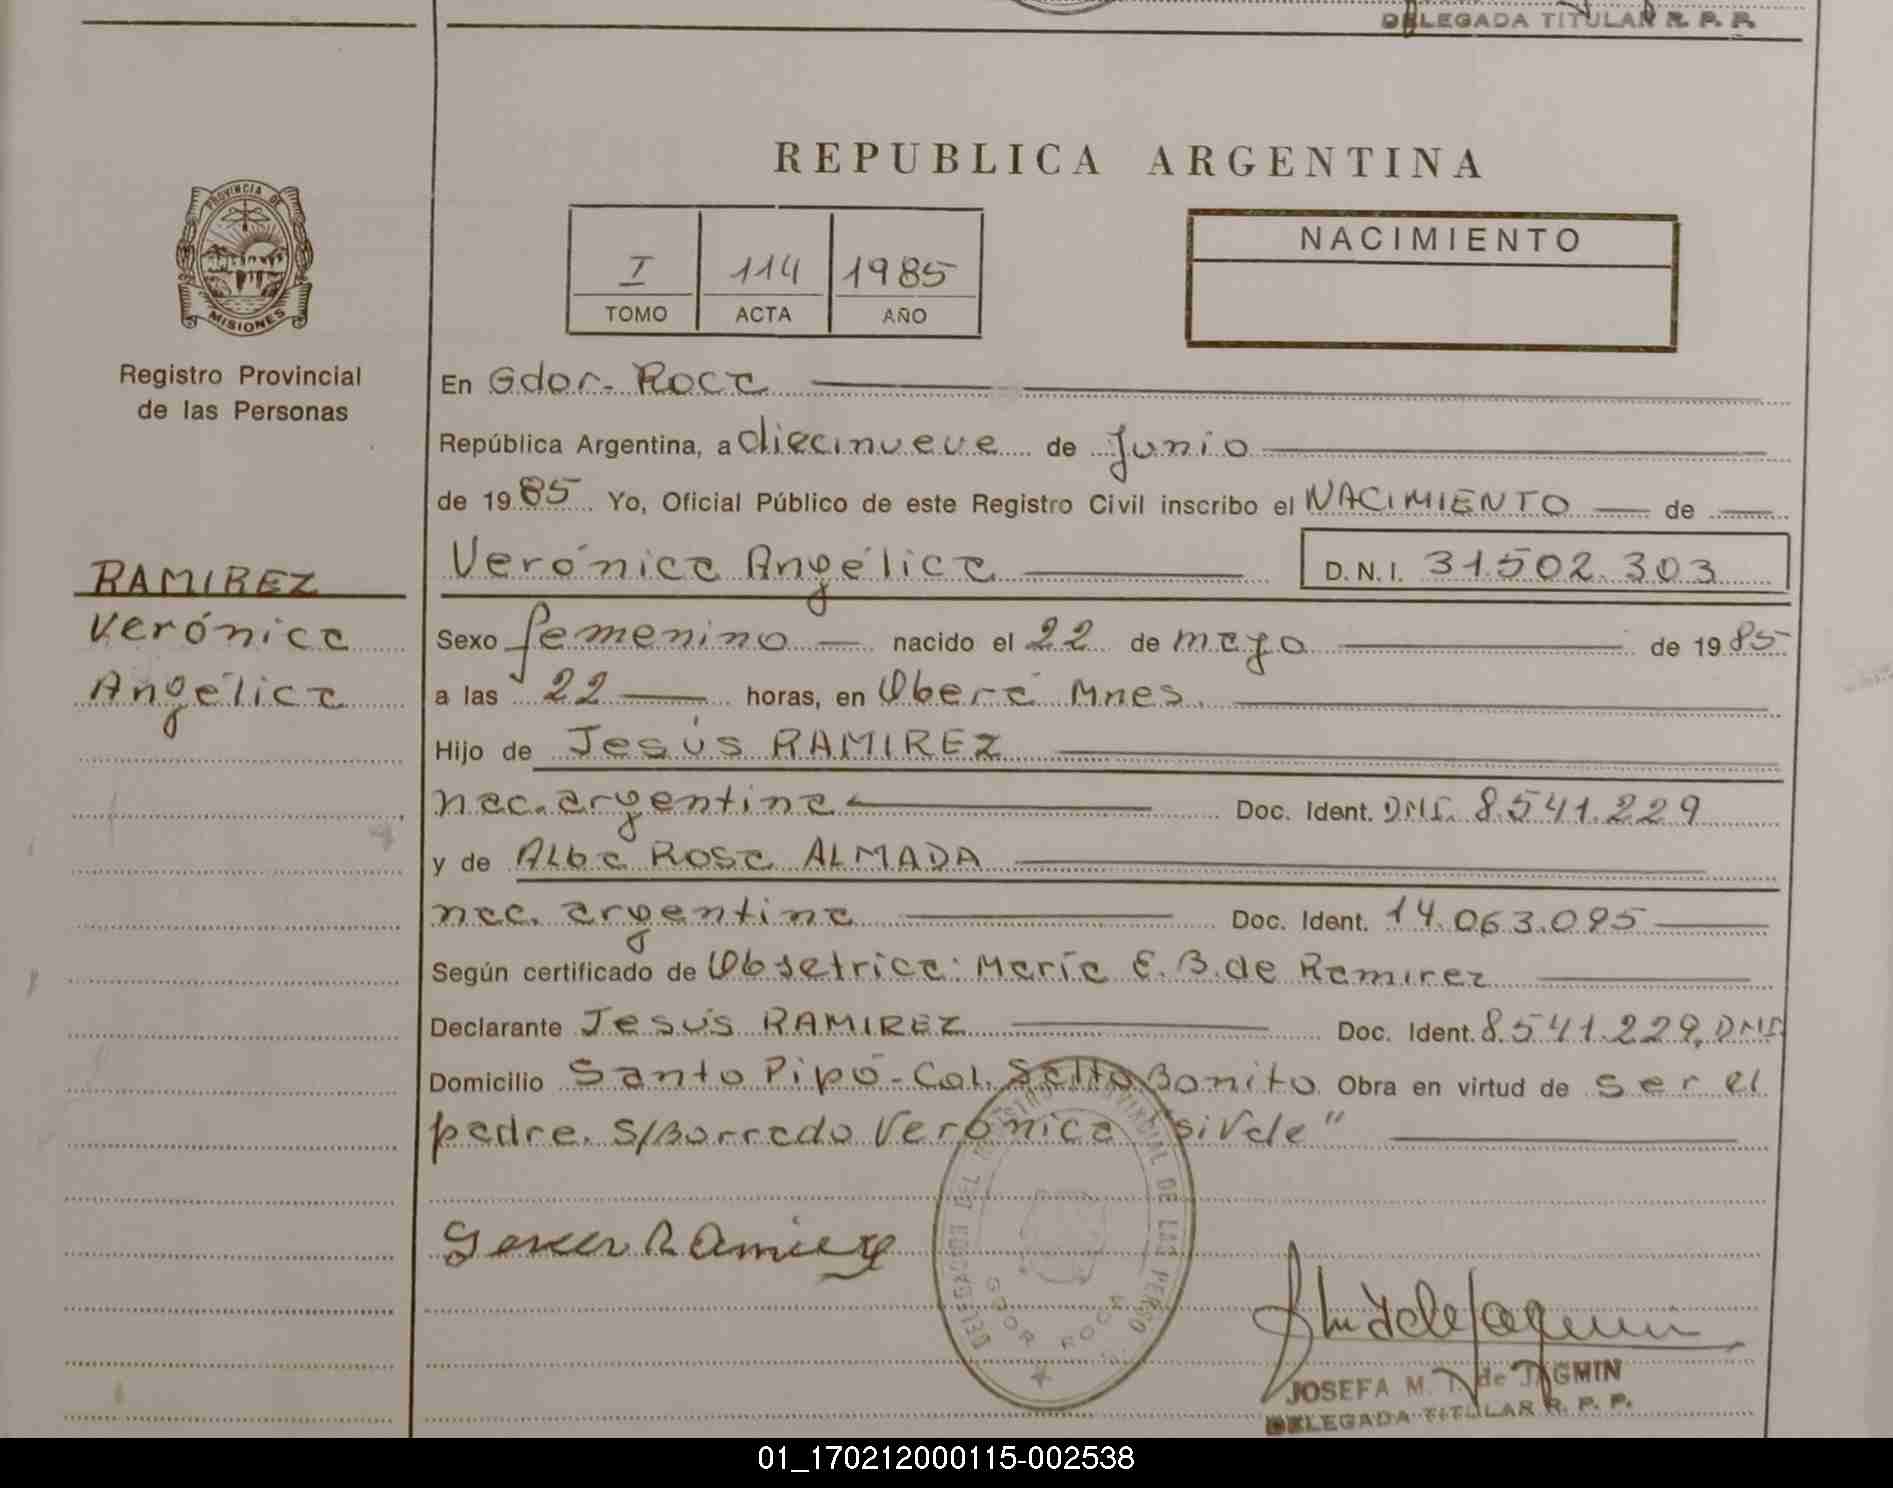 DELEGADA TITULAR R. P. P.
REPUBLICA ARGENTINA
PROVINCIA DE
MISIONES
Registro Provincial
de las Personas
I 114 1985
TOMO ACTA AÑO
NACIMIENTO
En Gdor. Roca
República Argentina, a diecinueve de Junio
de 1985 Yo, Oficial Público de este Registro Civil inscribo el NACIMIENTO de
Verónica Angélica D.N.I. 31.502.303
RAMIREZ
Verónica
Angélica
Sexo femenino nacido el 22 de mayo de 1985
a las 22 horas, en Oberá Mnes.
Hijo de Jesús RAMIREZ
nac. argentina Doc. Ident. DNI. 8.541.229
y de Alba Rosa ALMADA
nac. argentina Doc. Ident. 14.063.095
Según certificado de Obsetrica: María E. B. de Ramirez
Declarante Jesús RAMIREZ Doc. Ident. 8.541.229, DNI
Domicilio Santo Pipó - Col. Salto Bonito Obra en virtud de ser el
padre. S/Borrado Verónica "si Vale"
Ramirez
DELEGACION DEL REGISTRO PROVINCIAL DE LAS PERSO
GDOR ROCA
JOSEFA M. T. de JAGMIN
DELEGADA TITULAR R. P. P.
01_170212000115-002538